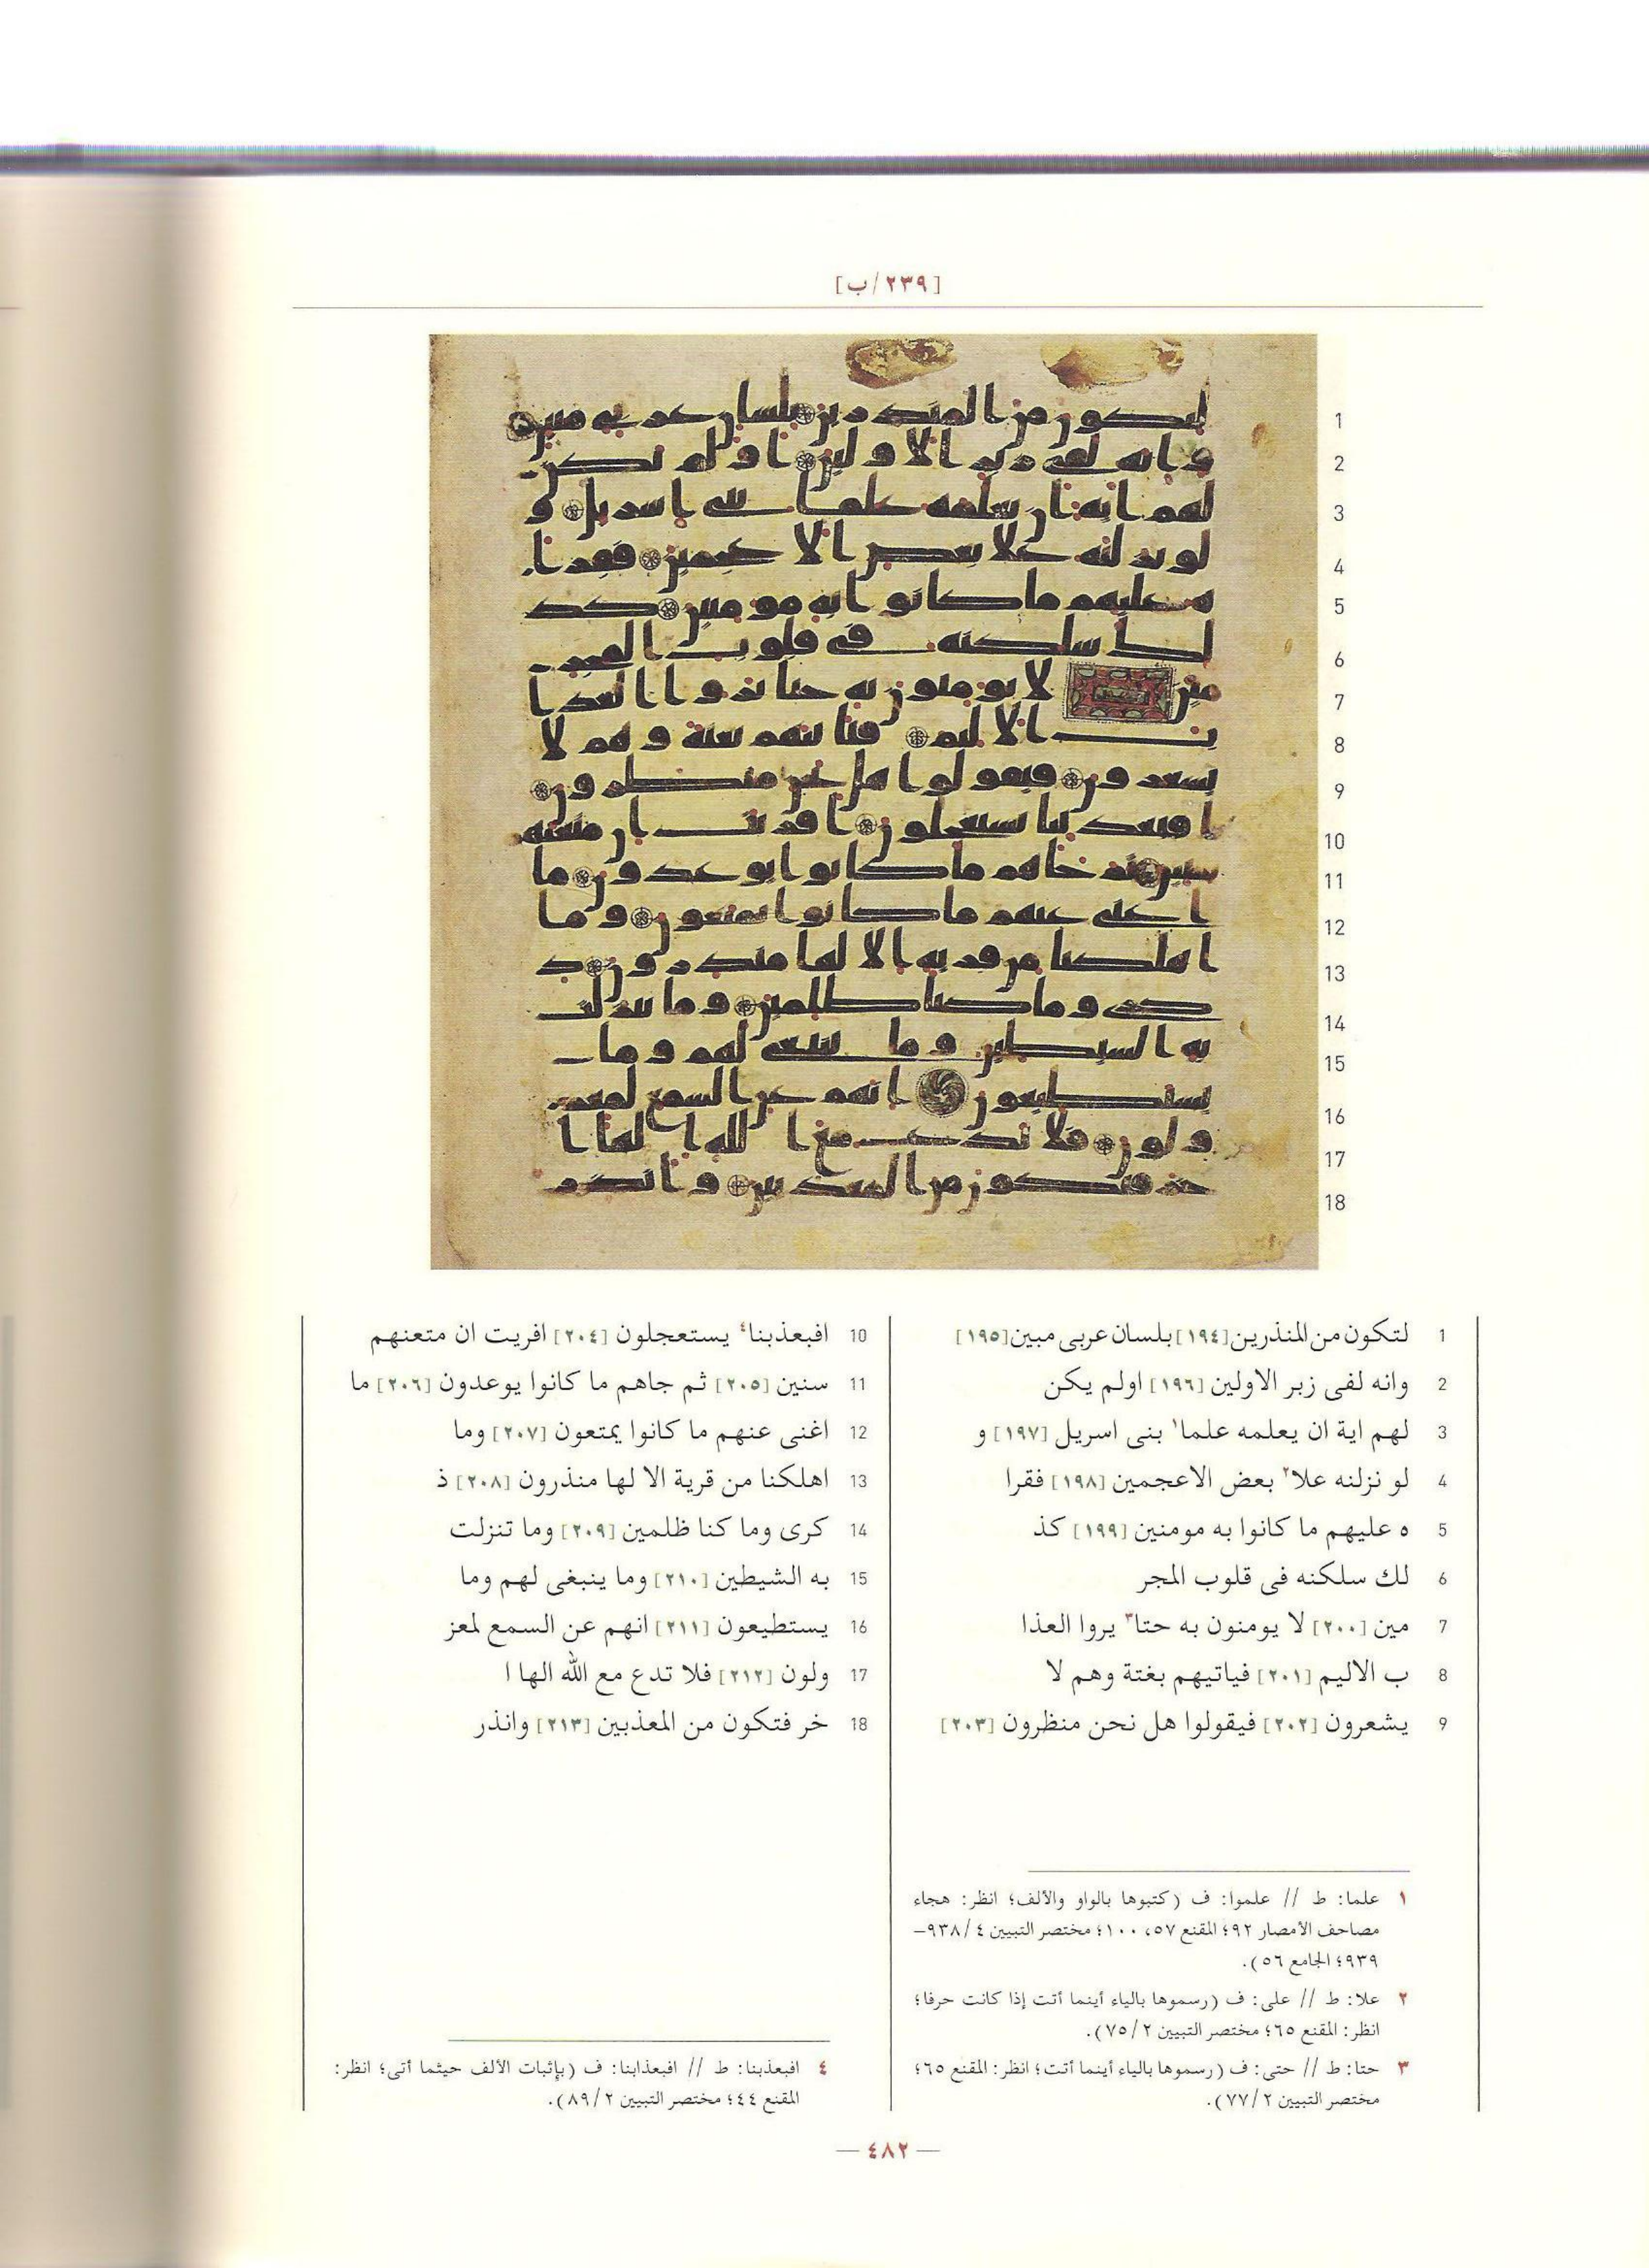 [٢٣٩/ب]
1 لتكون من المنذرين [١٩٤] بلسان عربى مبين [١٩٥]
2 وانه لفى زبر الاولين [١٩٦] اولم يكن
3 لهم اية ان يعلمه علما١ بنى اسريل [١٩٧] و
4 لو نزلنه علا٢ بعض الاعجمين [١٩٨] فقرا
5 ه عليهم ما كانوا به مومنين [١٩٩] كذ
6 لك سلكنه فى قلوب المجر
7 مين [٢٠٠] لا يومنون به حتا٣ يروا العذا
8 ب الاليم [٢٠١] فياتيهم بغتة وهم لا
9 يشعرون [٢٠٢] فيقولوا هل نحن منظرون [٢٠٣]
10 افبعذبنا٤ يستعجلون [٢٠٤] افريت ان متعنهم
11 سنين [٢٠٥] ثم جاهم ما كانوا يوعدون [٢٠٦] ما
12 اغنى عنهم ما كانوا يمتعون [٢٠٧] وما
13 اهلكنا من قرية الا لها منذرون [٢٠٨] ذ
14 كرى وما كنا ظلمين [٢٠٩] وما تنزلت
15 به الشيطين [٢١٠] وما ينبغى لهم وما
16 يستطيعون [٢١١] انهم عن السمع لمعز
17 ولون [٢١٢] فلا تدع مع الله الها ا
18 خر فتكون من المعذبين [٢١٣] وانذر
١ علما: ط // علموا: ف (كتبوها بالواو والألف؛ انظر: هجاء
مصاحف الأمصار ٩٢؛ المقنع ٥٧، ١٠٠؛ مختصر التبيين ٤/٩٣٨–
٩٣٩؛ الجامع ٥٦).
٢ علا: ط // على: ف (رسموها بالياء أينما أتت إذا كانت حرفا؛
انظر: المقنع ٦٥؛ مختصر التبيين ٢/٧٥).
٣ حتا: ط // حتى: ف (رسموها بالياء أينما أتت؛ انظر: المقنع ٦٥؛
مختصر التبيين ٢/٧٧).
٤ افبعذبنا: ط // افبعذابنا: ف (بإثبات الألف حيثما أتى؛ انظر:
المقنع ٤٤؛ مختصر التبيين ٢/٨٩).
— ٤٨٢ —